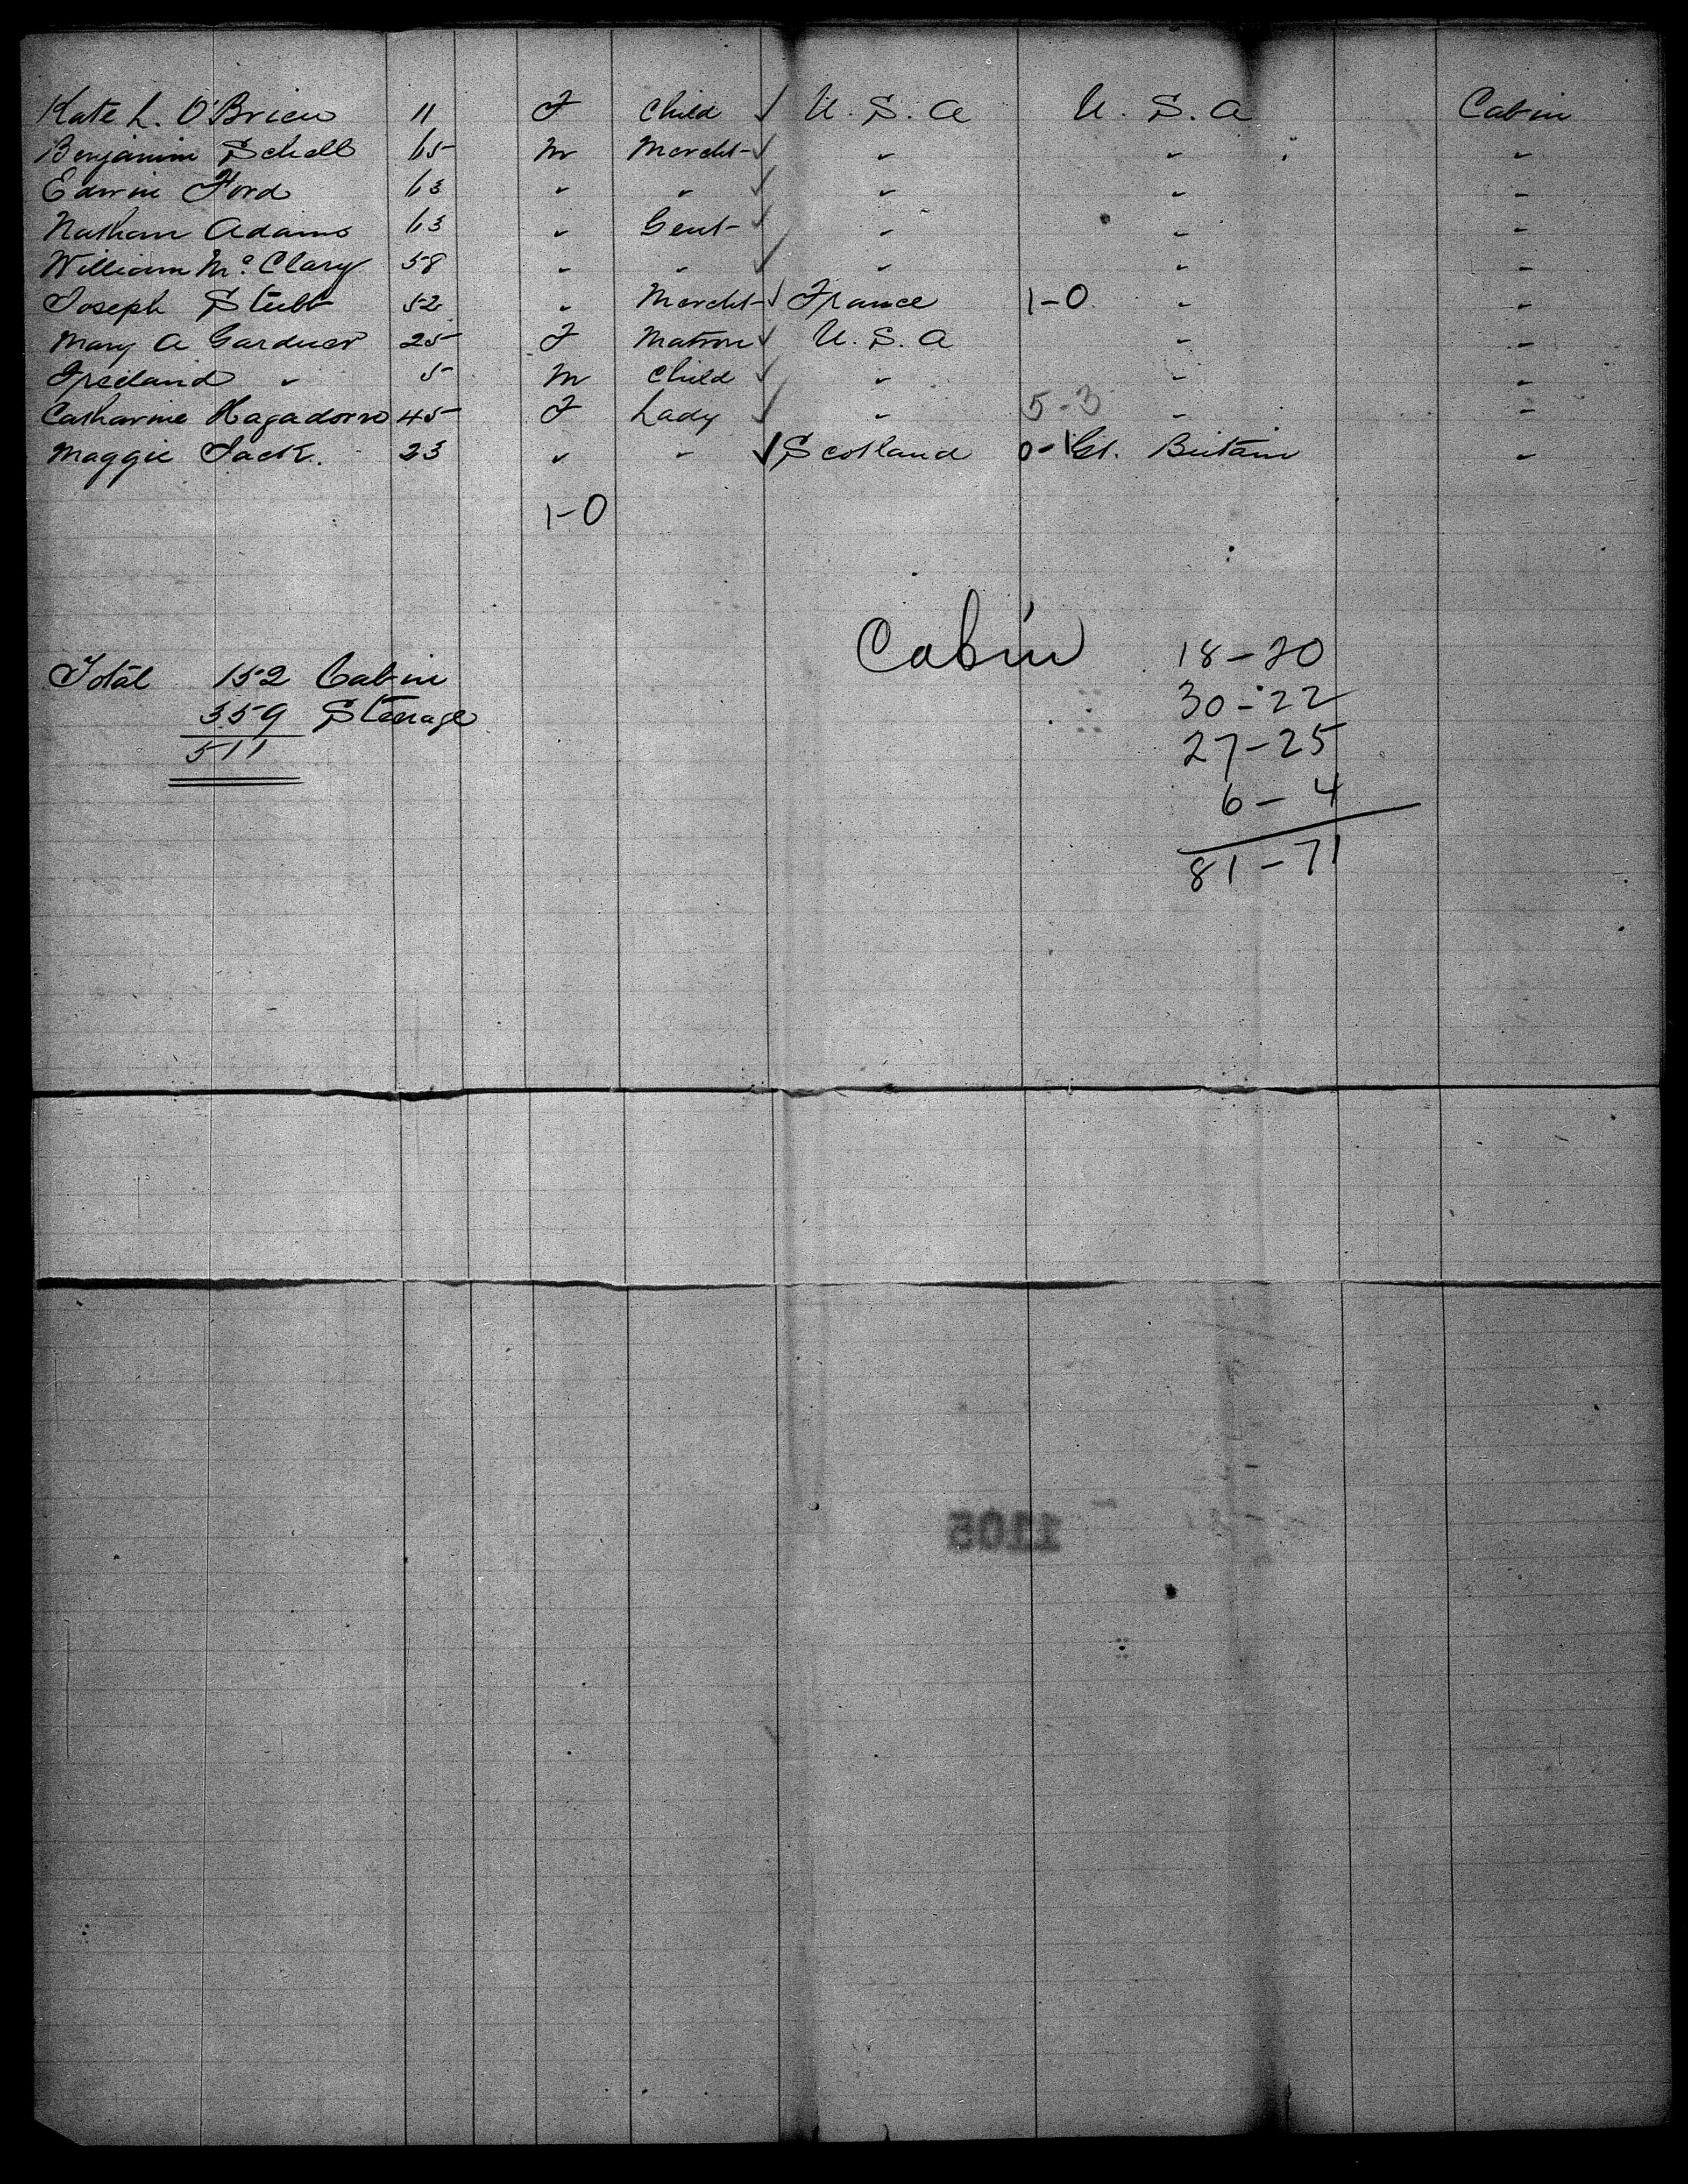 Kate L. O'Brien 11 F Child ✓ U. S. A U. S. A Cabin
Benjamin Schell 65 M Mercht ✓ " " "
Edwin Ford 63 " " ✓ " " "
Nathan Adams 63 " Gent ✓ " " "
William Mc Clary 58 " " ✓ " " "
Joseph Stubt 52 " Mercht ✓ France 1-0 " "
Mary A Gardner 25 F Matron ✓ U. S. A " "
Freeland " 5 M Child ✓ " " "
Catharine Hagadorn 45 F Lady ✓ " 5-3 " "
Maggie Jack. 23 " " ✓ Scotland 0-1 Gt. Britain "
1-0
Cabin
Total 152 Cabin
359 Steerage
511
18-20
30-22
27-25
6-4
81-71
1105